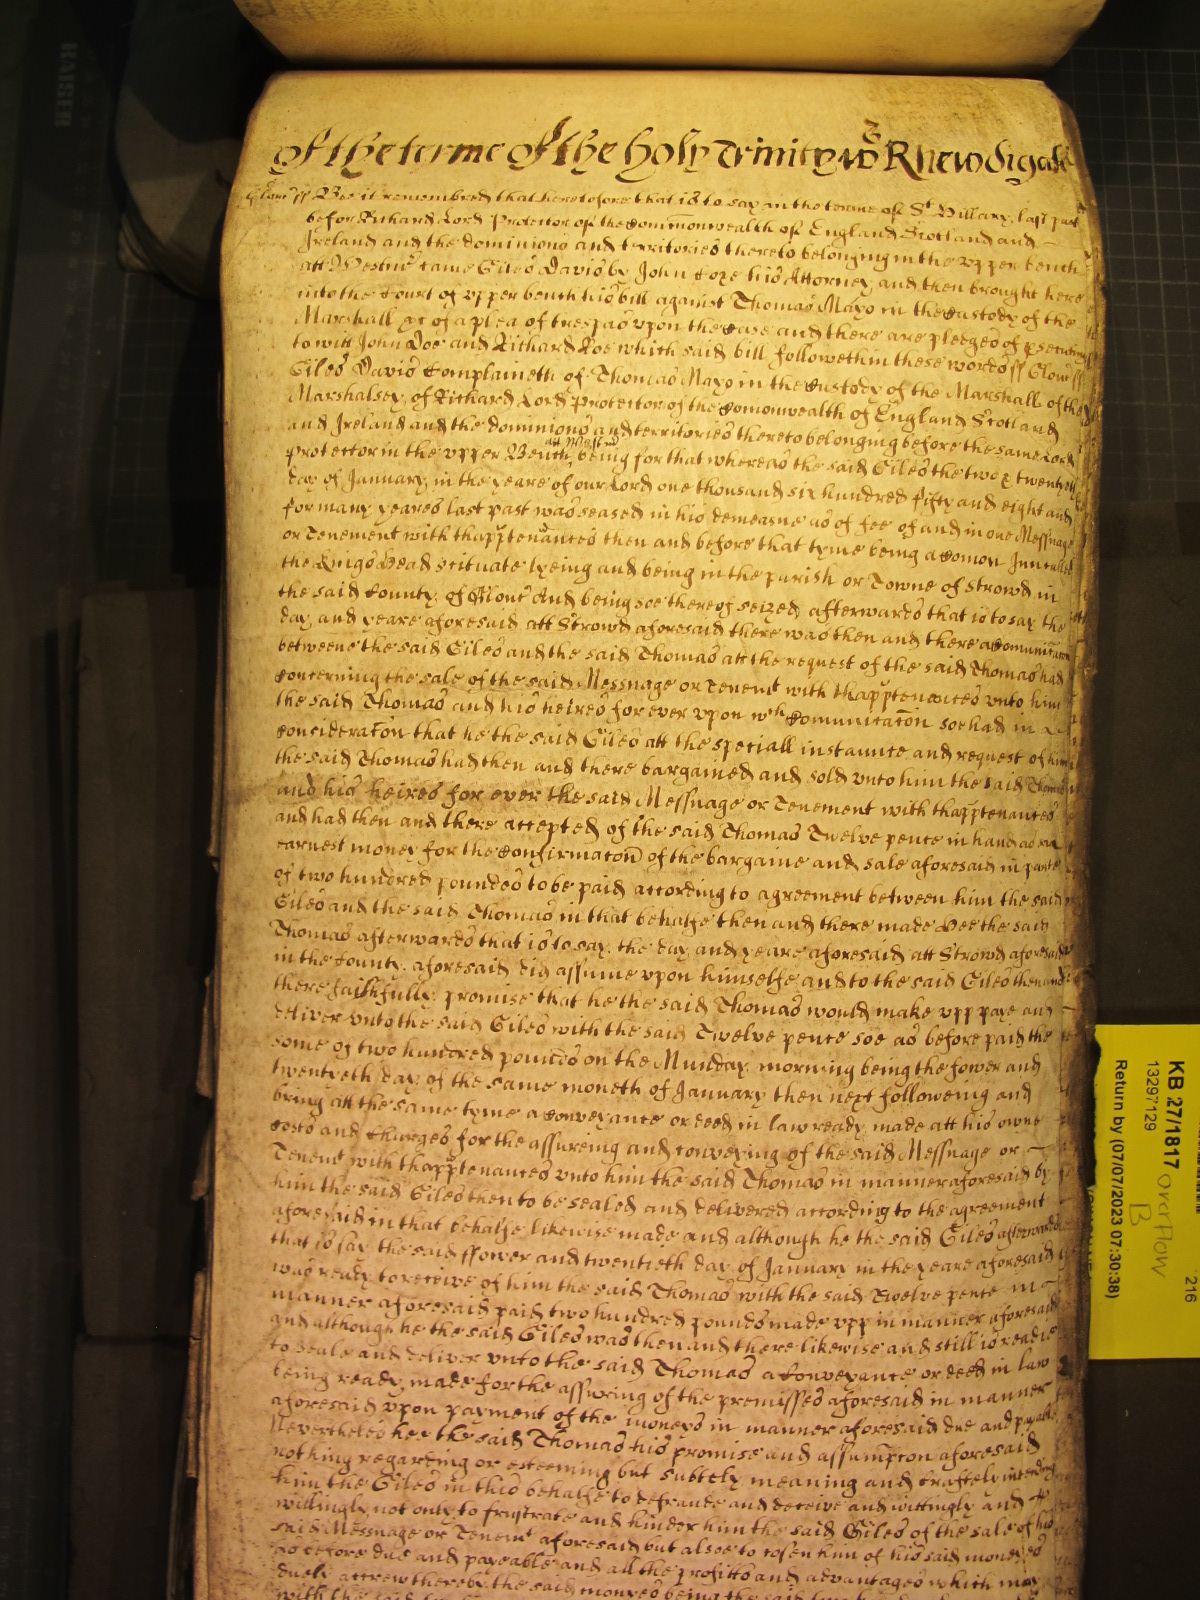 of the terme of the holy Trinity Ro Rnewdigate
Glouc ss Bee it remembred that heretofore that is to say in the terme of St Hillary last past
before Richard Lord Protector of the Com̄onwealth of England Scotland and
Ireland and the dominions and territories thereto belonging in the vpper bench
att Westmr came Giles Davis by John Coxe his Attorney and then brought here
into the Court of vpper bench his bill against Thomas Mayo in the Custody of the
Marshall &c of a plea of trespas vpon the Case and there are pledges of
to witt John Doe and Richard Roe which said bill followeth in these words ss Glouc ss
Giles Davis Complaineth of Thomas Mayo in the Custody of the Marshall of the
Marshalsey of Richard Lord Protector of the Comonwealth of England Scotland
and Ireland and the dominions and territories thereto belonging before the same Lord
protector in the vpper Bench att Westmr being for that whereas the said Giles the two & twentyeth
day of January in the yeare of our Lord one thousand six hundred fifty and eight and
for many yeares last past was seased in his demeasne as of fee of and in one Messuage
or Tenement with thapptenances then and before that tyme being a Comon Inn called
the Kings Head scituate lyeing and being in the parish or Towne of Strowd in
the said County of Glouc And being soe thereof seized afterwards that is to say the
day and yeare aforesaid att Strowd aforesaid there was then and there a Communicacon
betweene the said Giles and the said Thomas att the request of the said Thomas had
Concerning the sale of the said Messuage or Tenemt with thapptenances vnto him
the said Thomas and his heires for ever vpon wch Comunicacōn soe had in
Consideracōn that he the said Giles att the speciall instaunce and request of him
the said Thomas had then and there bargained and sold vnto him the said Thomas
and his heires for ever the said Messuage or Tenement with thapptenances
and had then and there accepted of the said Thomas Twelve pence in hand as
earnest money for the Confirmacōn of the bargaine and sale aforesaid in parte
of two hundred poundes to be paid according to agreement between him the said
Giles and the said Thomas in that behalfe then and there made Hee the said
Thomas afterwards that is to say the day and yeare aforesaid att Strowd aforesaid
in the County aforesaid did assume vpon himselfe and to the said Giles then and
there faithfully promise that he the said Thomas would make vpp paye and
deliver vnto the said Giles with the said Twelve pence soe as before paid the
some of two hundred pounds on the Munday morning being the fower and
twentyeth day of the same moneth of January then next followeing and
bring att the same tyme a Conveyance or deed in law ready made att his owne
Costs and Charges for the assureing and conveying of the said Messuage or
Tenemt with thapptenances vnto him the said Thomas in manner aforesaid by
him the said Giles then to be sealed and delivered according to the agreement
aforesaid in that behalfe likewise made and although he the said Giles afterwards
that is say the said ffower and twentieth day of January in the yeare aforesaid
was ready to receive of him the said Thomas with the said Twelve pence in
manner aforesaid paid two hundred pounds made vpp in manner aforesaid
and although he the said Giles was then and there likewise and still is readie
to seale and deliver vnto the said Thomas a Conveyance or deed in law
being ready made for the assuring of the premisses aforesaid in manner
aforesaid vpon payment of the moneys in manner aforesaid due and payable
Nevertheles hee the said Thomas his promise and assumpcon aforesaid
nothing regarding or esteeming but subtely meaning and craftely intending
him the Giles in this behalfe to defraude and deceive and wittingly and
willingly not only to frustrate and hinder him the said Giles of the sale of his
said Messuage or Tenemt aforesaid but alsoe to cosen him of his said moneyes
as before due and payeable and all the profitts and advantages which may
duely accrew thereby the said moneyes being the said
KAISER
KB 27/1817 overflow
B
13297129
Return by (07/07/2023 07:30:38)
216